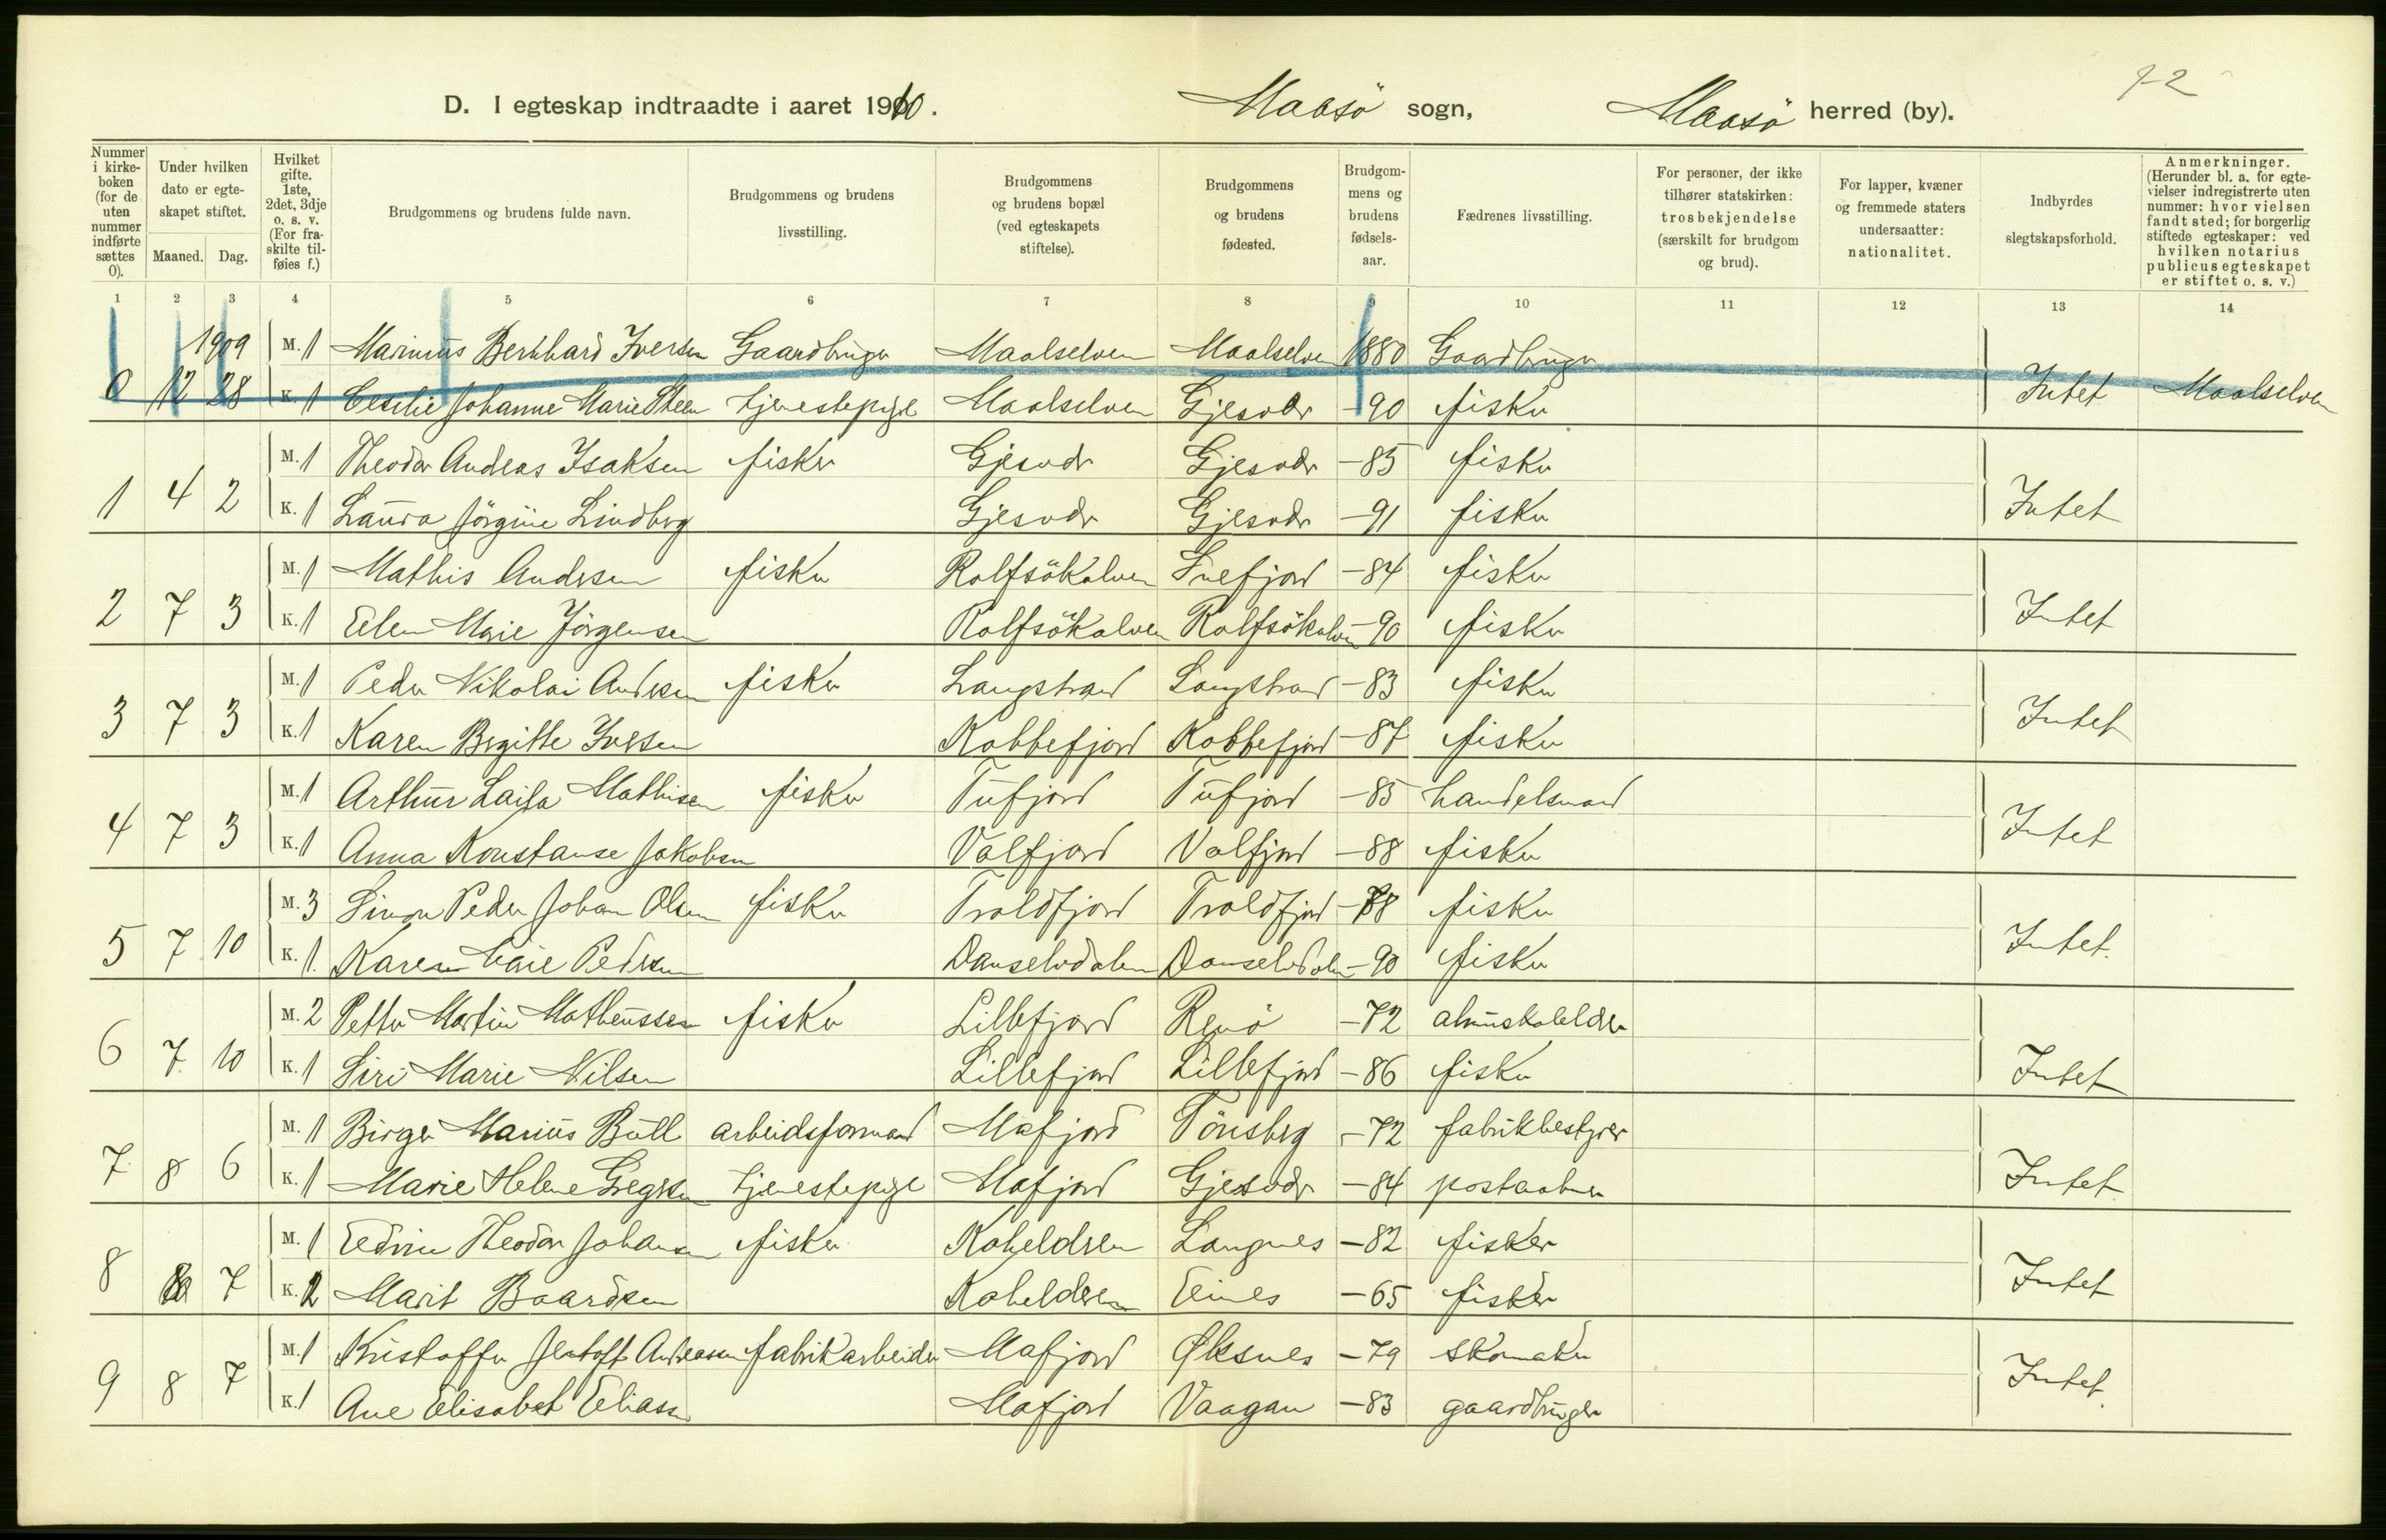 D. I egteskap indtraadte i aaret 1910. Maasö sogn, Maasö herred (by).
Nummer i kirke-boken (for de uten nummer indførte sættes 0).
Under hvilken dato er egte-skapet stiftet.
Maaned. Dag.
Hvilket gifte. 1ste, 2det, 3dje o. s. v. (For fra-skilte til-føies f.)
Brudgommens og brudens fulde navn.
Brudgommens og brudens livsstilling.
Brudgommens og brudens bopæl (ved egteskapets stiftelse).
Brudgommens og brudens fødested.
Brudgom-mens og brudens fødsels-aar.
Fædrenes livsstilling.
For personer, der ikke tilhører statskirken: trosbekjendelse (særskilt for brudgom og brud).
For lapper, kvæner og fremmede staters undersaatter: nationalitet.
Indbyrdes slegtskapsforhold.
Anmerkninger. (Herunder bl. a. for egte-vielser indregistrerte uten nummer: hvor vielsen fandt sted; for borgerlig stiftede egteskaper: ved hvilken notarius publicus egteskapet er stiftet o. s. v.)
1 2 3 4 5 6 7 8 9 10 11 12 13 14
1909 M. 1 Marinius Bernhard Iversen Gaardbruger Maalselven Maalselven 1880 Gaardbruger
0 12 28 K. 1 Cecilie Johanne Marie Steen tjenestepige Maalselven Gjesvær -90 fisker Intet Maalselven
M. 1 Theodor Andreas Isaksen fisker Gjesvær Gjesvær -85 fisker
1 4 2 K. 1 Laura Jörgine Lindberg Gjesvær Gjesvær -91 fisker Intet
M. 1 Mathis Andersen fisker Rolfsökalven Snefjord -84 fisker
2 7 3 K. 1 Elen Marie Jörgensen Rolfsökalven Rolfsökalven -90 fisker Intet
M. 1 Peder Nikolai Andersen fisker Langstrand Langstrand -83 fisker
3 7 3 K. 1 Karen Bergitte Iversen Kobbefjord Kobbefjord -87 fisker Intet
M. 1 Arthur Laifa Mathisen fisker Tufjord Tufjord -85 handelsmand
4 7 3 K. 1 Anna Konstanse Jakobsen Valfjord Valfjord -88 fisker Intet
M. 3 Simon Peder Johan Olsen fisker Troldfjord Troldfjord -78 fisker
5 7 10 K. 1 Karen Marie Pedersen Danselvdalen Danselvdalen -90 fisker Intet.
M. 2 Petter Martin Matheussen fisker Lillefjord Renö -72 almuskolelærer
6 7 10 K. 1 Siri Marie Nilsen Lillefjord Lillefjord -86 fisker Intet
M. 1 Birger Marius Bull arbeidsformand Mafjord Tönsberg -72 fabrikbestyrer
7 8 6 K. 1 Marie Helene Gregersen tjenestepige Mafjord Gjesvær -84 postaabner Intet
M. 1 Edvin Theodor Johansen fisker Kobeldren Langnes -82 fisker
8 8 7 K. 2 Marit Baardsen Kobeldren Eines -65 fisker Intet
M. 1 Kristoffer Jentoft Andreasen fabrikarbeider Mafjord Øksnes -79 skomaker
9 8 7 K. 1 Ane Elisabet Eliassen Mafjord Vaagan -83 gaardbruger Intet.